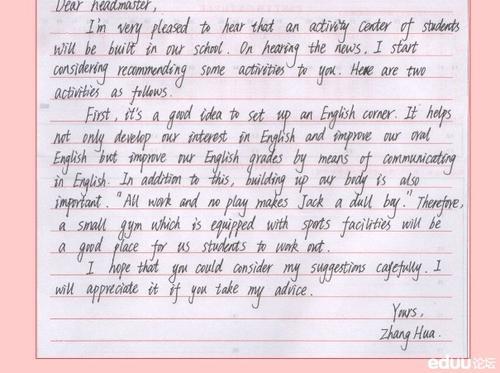 Dear headmaster,
I'm very pleased to hear that an activity center of students
will be built in our school. On hearing the news, I start
considering recommending some activities to you. Here are two
activities as follows.
First, it's a good idea to set up an English corner. It helps
not only develop our interest in English and improve our oral
English but improve our English grades by means of communicating
in English. In addition to this, building up our body is also
important. "All work and no play makes Jack a dull boy." Therefore,
a small gym which is equipped with sports facilities will be
a good place for us students to work out.
I hope that you could consider my suggestions carefully. I
will appreciate it if you take my advice.
Yours,
Zhang Hua.
eduu论坛